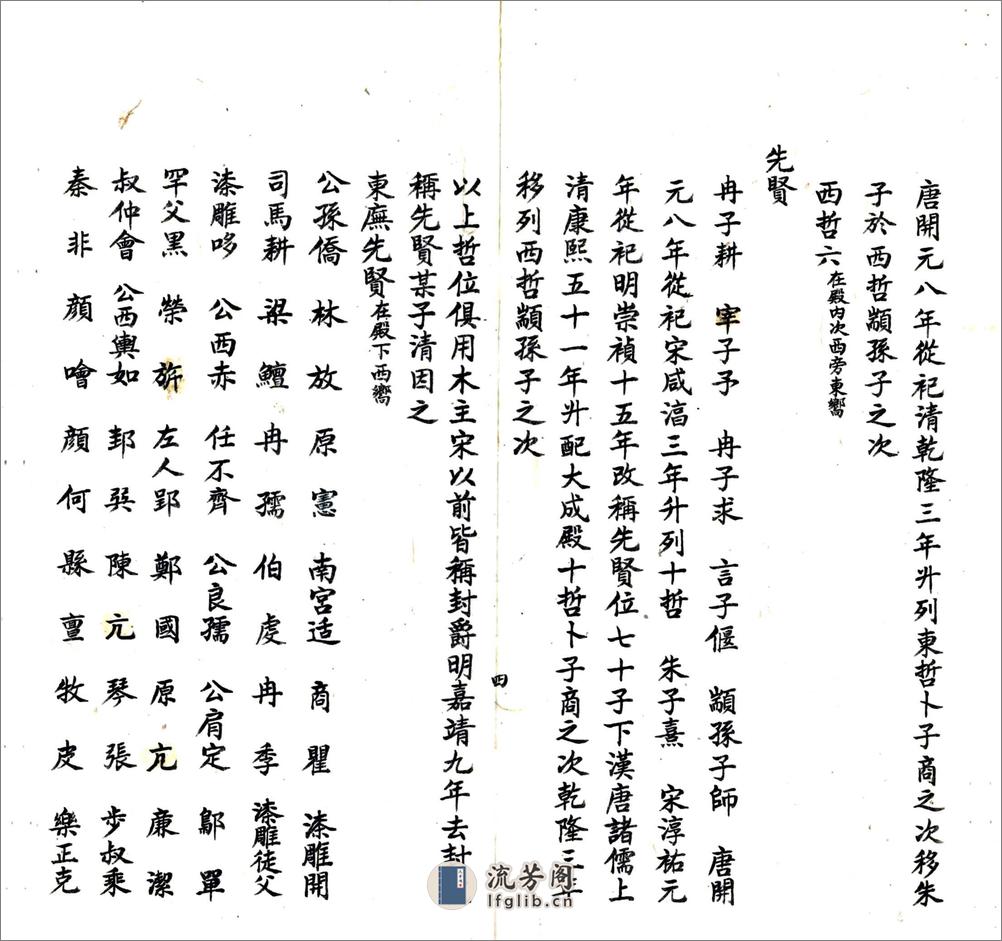 唐開元八年從祀清乾隆三年升列東哲卜子商之次移朱
子於西哲顓孫子之次
西哲六在殿内次西旁東嚮
先賢
冉子耕　宰子予　冉子求　言子偃　顓孫子師　唐開
元八年從祀宋咸淳三年升列十哲　朱子熹　宋淳祐元
年從祀明崇禎十五年改稱先賢位七十子下漢唐諸儒上
清康熙五十一年升配大成殿十哲卜子商之次乾隆三年
移列西哲顓孫子之次
以上哲位俱用木主宋以前皆稱封爵明嘉靖九年去封
稱先賢某子清因之
東廡先賢在殿下西嚮
公孫僑　林放　原憲　南宮适　商瞿　漆雕開
司馬耕　梁鱣　冉孺　伯虔　冉季　漆雕徒父
漆雕哆　公西赤　任不齊　公良孺　公肩定　鄡單
罕父黑　榮旂　左人郢　鄭國　原亢　廉潔
叔仲會　公西輿如　邽巽　陳亢　琴張　步叔乘
秦非　顏噲　顏何　縣亶　牧皮　樂正克
四
流芳閣
lfglib.cn